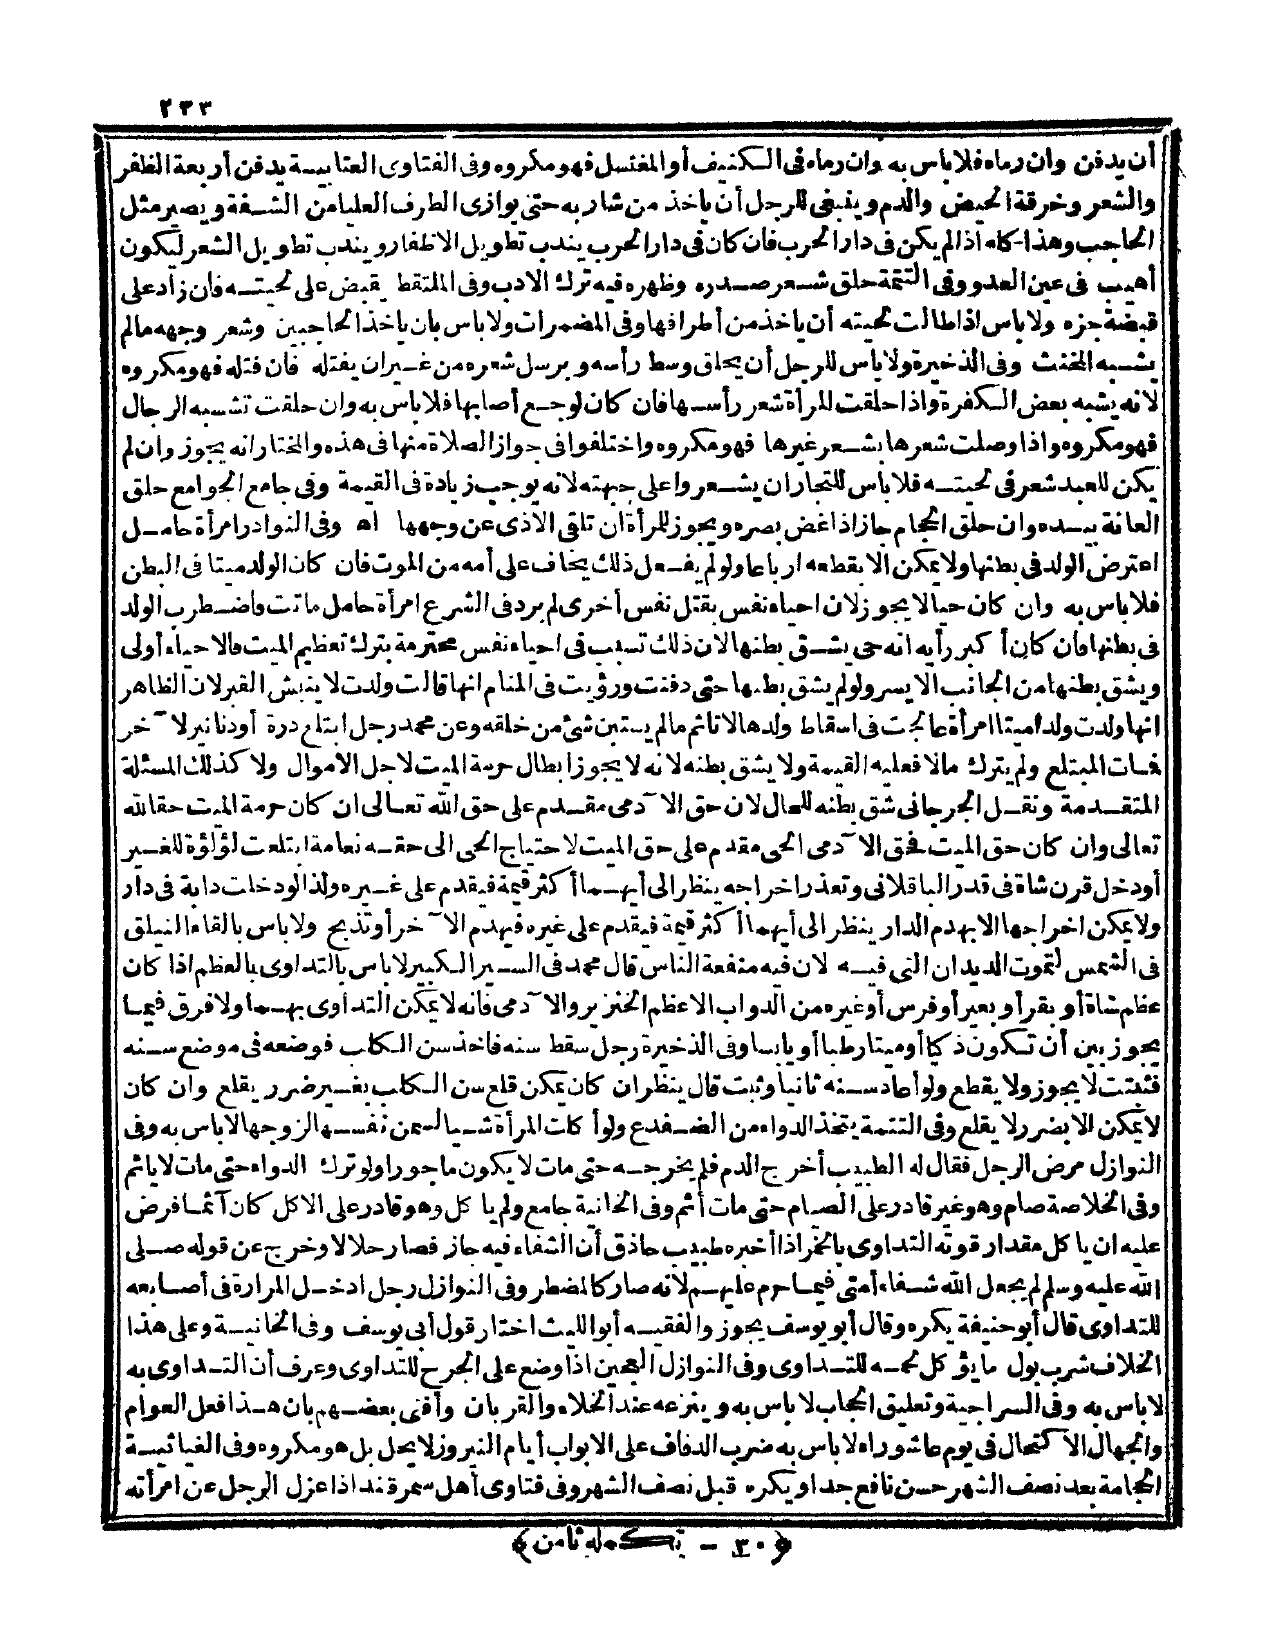 ٢٣٣
أن يدفن وان رماه فلا باس به وان رماه فى الكنيف أو المغتسل فهو مكروه وفى الفتاوى العتابية يدفن أربعة الظفر
والشعر وخرقة الحيض والدم وينبغى للرجل أن ياخذ من شاربه حتى يوازى الطرف العليا من الشفة ويصير مثل
الحاجب وهذا كله اذا لم يكن فى دار الحرب فان كان فى دار الحرب يندب تطويل الاظفار ويندب تطويل الشعر ليكون
أهيب فى عين العدو وفى التتمة حلق شعر صدره وظهره فيه ترك الادب وفى الملتقط يقبض على لحيته فان زاد على
قبضة جزه ولا باس اذا طالت لحيته أن ياخذ من أطرافها وفى المضمرات ولا باس بان ياخذ الحاجبين وشعر وجهه مالم
يشبه المخنث وفى الذخيرة ولا باس للرجل أن يحلق وسط رأسه ويرسل شعره من غير ان يفتله فان فتله فهو مكروه
لانه يشبه بعض الكفرة واذا حلقت المرأة شعر رأسها فان كان لوجع أصابها فلا باس به وان حلقت تشبه الرجال
فهو مكروه واذا وصلت شعرها بشعر غيرها فهو مكروه واختلفوا فى جواز الصلاة منها فى هذه والمختار انه يجوز وان لم
يكن للعبد شعر فى لحيته فلا باس للتجار ان يشعروا على جبهته لانه يوجب زيادة فى القيمة وفى جامع الجوامع حلق
العانة بيده وان حلق الحجام جاز اذا غض بصره ويجوز للمرأة ان تلقى الاذى عن وجهها اه وفى النوادر امرأة حامل
اعترض الولد فى بطنها ولا يمكن الا بقطعه ارباعا ولو لم يفعل ذلك يخاف على أمه من الموت فان كان الولد ميتا فى البطن
فلا باس به وان كان حيا لا يجوز لان احياء نفس بقتل نفس أخرى لم يرد فى الشرع امرأة حامل ماتت واضطرب الولد
فى بطنها فان كان أكبر رأيه انه حى يشق بطنها لان ذلك تسبب فى احياء نفس محترمة بترك تعظيم الميت فالاحياء أولى
ويشق بطنها من الجانب الايسر ولو لم يشق بطنها حتى دفنت ورؤيت فى المنام انها قالت ولدت لا ينبش القبر لان الظاهر
انها ولدت ولدا ميتا امرأة عالجت فى اسقاط ولدها لا تاثم مالم يستبن شئ من خلقه وعن محمد رجل ابتلع درة أو دنانير لآخر
فمات المبتلع ولم يترك مالا فعليه القيمة ولا يشق بطنه لانه لا يجوز ابطال حرمة الميت لاجل الاموال ولا كذلك المسئلة
المتقدمة ونقل الجرجانى شق بطنه للمال لان حق الآدمى مقدم على حق الله تعالى ان كان حرمة الميت حقا لله
تعالى وان كان حق الميت فحق الآدمى الحى مقدم على حق الميت لاحتياج الحى الى حقه نعامة ابتلعت لؤلؤة للغير
أو دخل قرن شاة فى قدر الباقلانى وتعذر اخراجه ينظر الى أيهما أكثر قيمة فيقدم على غيره ولذا لو دخلت دابة فى دار
ولا يمكن اخراجها الا بهدم الدار ينظر الى أيهما أكثر قيمة فيقدم على غيره فيهدم الآخر أو تذبح ولا باس بالقاء النيلق
فى الشمس لتموت الديدان التى فيه لان فيه منفعة الناس قال محمد فى السير الكبير لا باس بالتداوى بالعظم اذا كان
عظم شاة أو بقر أو بعير أو فرس أو غيره من الدواب الا عظم الخنزير والآدمى فانه لا يمكن التداوى بهما ولا فرق فيما
يجوز بين أن تكون ذكيا أو ميتا رطبا أو يابسا وفى الذخيرة رجل سقط سنه فاخذ سن الكلب فوضعه فى موضع سنه
فثبتت لا يجوز ولا يقطع ولو أعاد سنه ثانيا وثبت قال ينظر ان كان يمكن قلع سن الكلب بغير ضرر يقلع وان كان
لا يمكن الا بضرر لا يقلع وفى التتمة يتخذ الدواء من الضفدع ولو أكلت المرأة شيا لسمن نفسها لزوجها لا باس به وفى
النوازل مرض الرجل فقال له الطبيب أخرج الدم فلم يخرجه حتى مات لا يكون ماجورا ولو ترك الدواء حتى مات لا ياثم
وفى الخلاصة صام وهو غير قادر على الصيام حتى مات أثم وفى الخانية جامع ولم ياكل وهو قادر على الاكل كان آثما فرض
عليه ان ياكل مقدار قوته التداوى بالخمر اذا أخبره طبيب حاذق أن الشفاء فيه جاز فصار حلالا وخرج عن قوله صلى
الله عليه وسلم لم يجعل الله شفاء أمتى فيما حرم عليهم لانه صار كالمضطر وفى النوازل رجل ادخل المرارة فى أصابعه
للتداوى قال أبو حنيفة يكره وقال أبو يوسف يجوز والفقيه أبو الليث اختار قول أبى يوسف وفى الخانية وعلى هذا
الخلاف شرب بول ما يؤكل لحمه للتداوى وفى النوازل العجين اذا وضع على الجرح للتداوى وعرف أن التداوى به
لا باس به وفى السراجية وتعليق الحجاب لا باس به وينزعه عند الخلاء والقربان وأفتى بعضهم بان هذا فعل العوام
والجهال الاكتحال فى يوم عاشوراء لا باس به ضرب الدفاف على الابواب أيام النيروز لا يحل بل هو مكروه وفى الغياثية
الحجامة بعد نصف الشهر حسن نافع جدا ويكره قبل نصف الشهر وفى فتاوى أهل سمرقند اذا عزل الرجل عن امرأته
﴿٣٠ - تكمله ثامن﴾